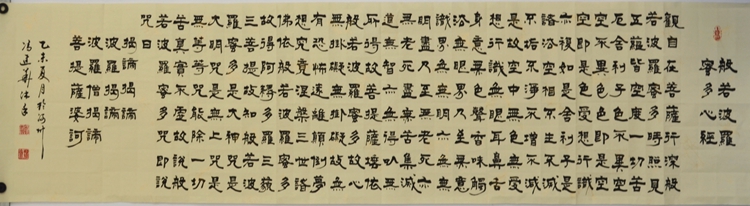 般若波羅
蜜多心經
觀自在菩薩行深般
若波羅蜜多時照見
五蘊皆空度一切苦
厄舍利子色不異空
空不異色色即是空
空即是色受想行識
亦復如是舍利子是
諸法空相不生不滅
不垢不淨不增不減
是故空中無色無受
想行識無眼耳鼻舌
身意無色聲香味觸
法無眼界乃至無意
識界無無明亦無無
明盡乃至無老死亦
無老死盡無苦集滅
道無智亦無得以無
所得故菩提薩埵依
般若波羅蜜多故心
無掛礙無掛礙故無
有恐怖遠離顛倒夢
想究竟涅槃三世諸
佛依般若波羅蜜多
故得阿耨多羅三藐
三菩提故知般若波
羅蜜多是大神咒是
大明咒是無上咒是
無等等咒能除一切
苦真實不虛故說般
若波羅蜜多咒即說
咒曰
揭諦揭諦
波羅揭諦
波羅僧揭諦
菩提薩婆訶
乙未夏月於